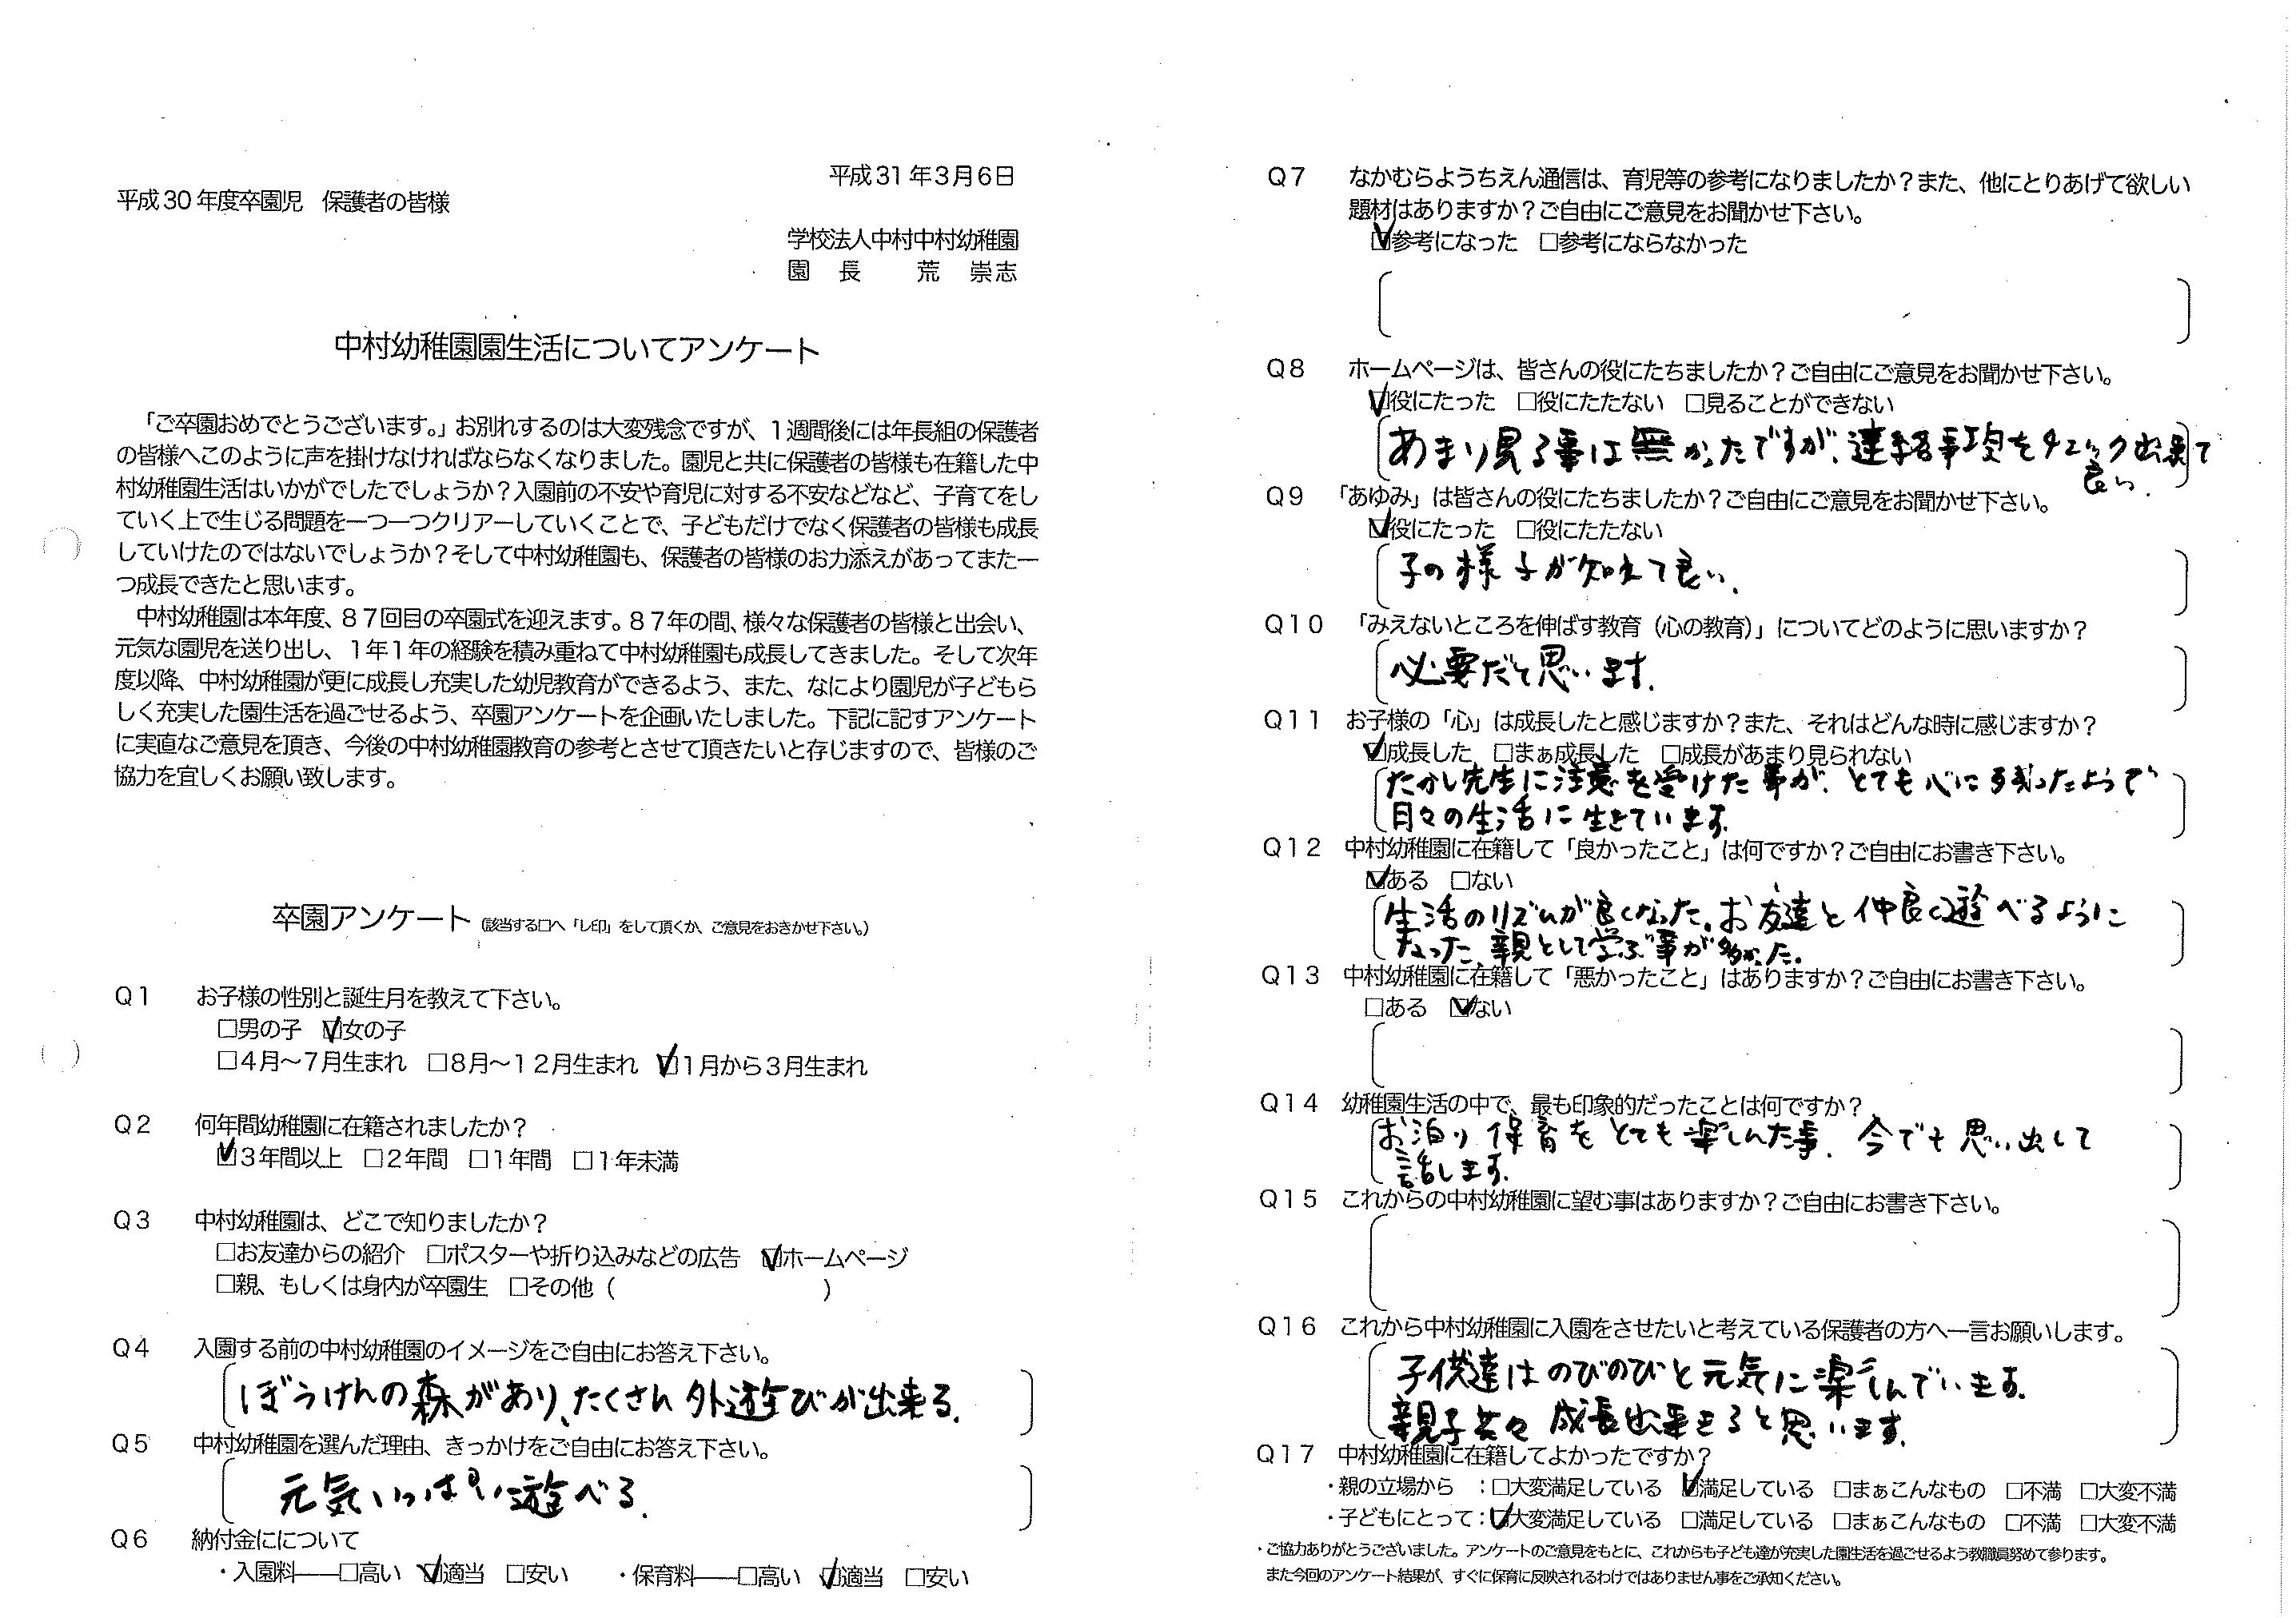 平成31年3月6日
平成30年度卒園児　保護者の皆様
学校法人中村中村幼稚園
園　長　　荒　崇志
中村幼稚園園生活についてアンケート
「ご卒園おめでとうございます。」お別れするのは大変残念ですが、1週間後には年長組の保護者
の皆様へこのように声を掛けなければならなくなりました。園児と共に保護者の皆様も在籍した中
村幼稚園生活はいかがでしたでしょうか？入園前の不安や育児に対する不安などなど、子育てをし
ていく上で生じる問題を一つ一つクリアーしていくことで、子どもだけでなく保護者の皆様も成長
していけたのではないでしょうか？そして中村幼稚園も、保護者の皆様のお力添えがあってまた一
つ成長できたと思います。
中村幼稚園は本年度、87回目の卒園式を迎えます。87年の間、様々な保護者の皆様と出会い、
元気な園児を送り出し、1年1年の経験を積み重ねて中村幼稚園も成長してきました。そして次年
度以降、中村幼稚園が更に成長し充実した幼児教育ができるよう、また、なにより園児が子どもら
しく充実した園生活を過ごせるよう、卒園アンケートを企画いたしました。下記に記すアンケート
に実直なご意見を頂き、今後の中村幼稚園教育の参考とさせて頂きたいと存じますので、皆様のご
協力を宜しくお願い致します。
卒園アンケート（該当する□へ「レ印」をして頂くか、ご意見をおきかせ下さい。）
Q1　お子様の性別と誕生月を教えて下さい。
□男の子　☑女の子
□4月～7月生まれ　□8月～12月生まれ　☑1月から3月生まれ
Q2　何年間幼稚園に在籍されましたか？
☑3年間以上　□2年間　□1年間　□1年未満
Q3　中村幼稚園は、どこで知りましたか？
□お友達からの紹介　□ポスターや折り込みなどの広告　☑ホームページ
□親、もしくは身内が卒園生　□その他（　　　　　　　　　）
Q4　入園する前の中村幼稚園のイメージをご自由にお答え下さい。
ぼうけんの森があり、たくさん外遊びが出来る.
Q5　中村幼稚園を選んだ理由、きっかけをご自由にお答え下さい。
元気いっぱい遊べる.
Q6　納付金にについて
・入園料――□高い　☑適当　□安い　　・保育料――□高い　☑適当　□安い
Q7　なかむらようちえん通信は、育児等の参考になりましたか？また、他にとりあげて欲しい
題材はありますか？ご自由にご意見をお聞かせ下さい。
☑参考になった　□参考にならなかった
Q8　ホームページは、皆さんの役にたちましたか？ご自由にご意見をお聞かせ下さい。
☑役にたった　□役にたたない　□見ることができない
あまり見る事は無かったですが、連絡事項をチェック出来て
良い.
Q9　「あゆみ」は皆さんの役にたちましたか？ご自由にご意見をお聞かせ下さい。
☑役にたった　□役にたたない
子の様子が知れて良い.
Q10　「みえないところを伸ばす教育（心の教育）」についてどのように思いますか？
必要だと思います.
Q11　お子様の「心」は成長したと感じますか？また、それはどんな時に感じますか？
☑成長した　□まぁ成長した　□成長があまり見られない
たかし先生に注意を受けた事が、とても心に残ったようで
日々の生活に生きています.
Q12　中村幼稚園に在籍して「良かったこと」は何ですか？ご自由にお書き下さい。
☑ある　□ない
生活のリズムが良くなった.お友達と仲良く遊べるように
なった.親として学ぶ事が多かった.
Q13　中村幼稚園に在籍して「悪かったこと」はありますか？ご自由にお書き下さい。
□ある　☑ない
Q14　幼稚園生活の中で、最も印象的だったことは何ですか？
お泊り保育をとても楽しんだ事.　今でも思い出して
話します.
Q15　これからの中村幼稚園に望む事はありますか？ご自由にお書き下さい。
Q16　これから中村幼稚園に入園をさせたいと考えている保護者の方へ一言お願いします。
子供達はのびのびと元気に楽しんでいます.
親子共々成長出来きると思います.
Q17　中村幼稚園に在籍してよかったですか？
・親の立場から　：□大変満足している　☑満足している　□まぁこんなもの　□不満　□大変不満
・子どもにとって：☑大変満足している　□満足している　□まぁこんなもの　□不満　□大変不満
・ご協力ありがとうございました。アンケートのご意見をもとに、これからも子ども達が充実した園生活を過ごせるよう教職員努めて参ります。
また今回のアンケート結果が、すぐに保育に反映されるわけではありません事をご承知ください。